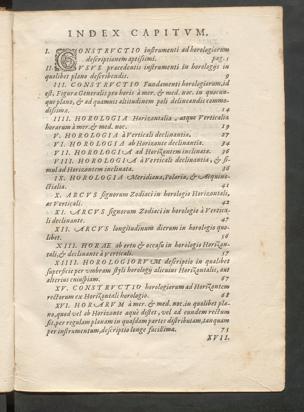 INDEX CAPITVM.
I. CONSTRVCTIO instrumenti ad horologiorum
descriptionem aptissimi. pag. 1
II. VSVS præcedentis instrumenti in horologijs in
quolibet plano describendis. 9
III. CONSTRVCTIO Fundamenti horologiorum, id
est, Figura Generalis pro horis à mer. & med. noc. in quocun-
que plano, & ad quamuis altitudinem poli delineandis commo-
dissima. 14
IIII. HOROLOGIA Horizontalia, atque Verticalia
horarum à mer. & med. noc. 19
V. HOROLOGIA à Verticali declinantia. 27
VI. HOROLOGIA ab Horizonte declinantia. 34
VII. HOROLOGIA ad Horizontem inclinata. 36
VIII. HOROLOGIA à Verticali declinantia, & si-
mul ad Horizontem inclinata. 36
IX. HOROLOGIA Meridiana, Polaria, & Æquino-
ctialia. 41
X. ARCVS signorum Zodiaci in horologio Horizontali,
ac Verticali. 42
XI. ARCVS signorum Zodiaci in horologio à Vertica-
li declinante. 47
XII. ARCVS longitudinum dierum in horologio quo-
libet. 56
XIII. HORAE ab ortu & occasu in horologio Horizon-
tali, & declinante à Verticali. 57
XIIII. HOROLOGIORVM descriptio in qualibet
superficie per vmbram styli horologij alicuius Horizontalis, aut
alterius cuiuspiam. 67
XV. CONSTRVCTIO horologiorum ad Horizontem
rectorum ex Horizontali horologio. 68
XVI. HORARVM à mer. & med. noc. in quolibet pla-
no, quod vel ab Horizonte aequè distet, vel ad eundem rectum
sit, per regulam planam in quasdam partes distributam, tanquam
per instrumentum, descriptio longe facillima. 75
XVII.